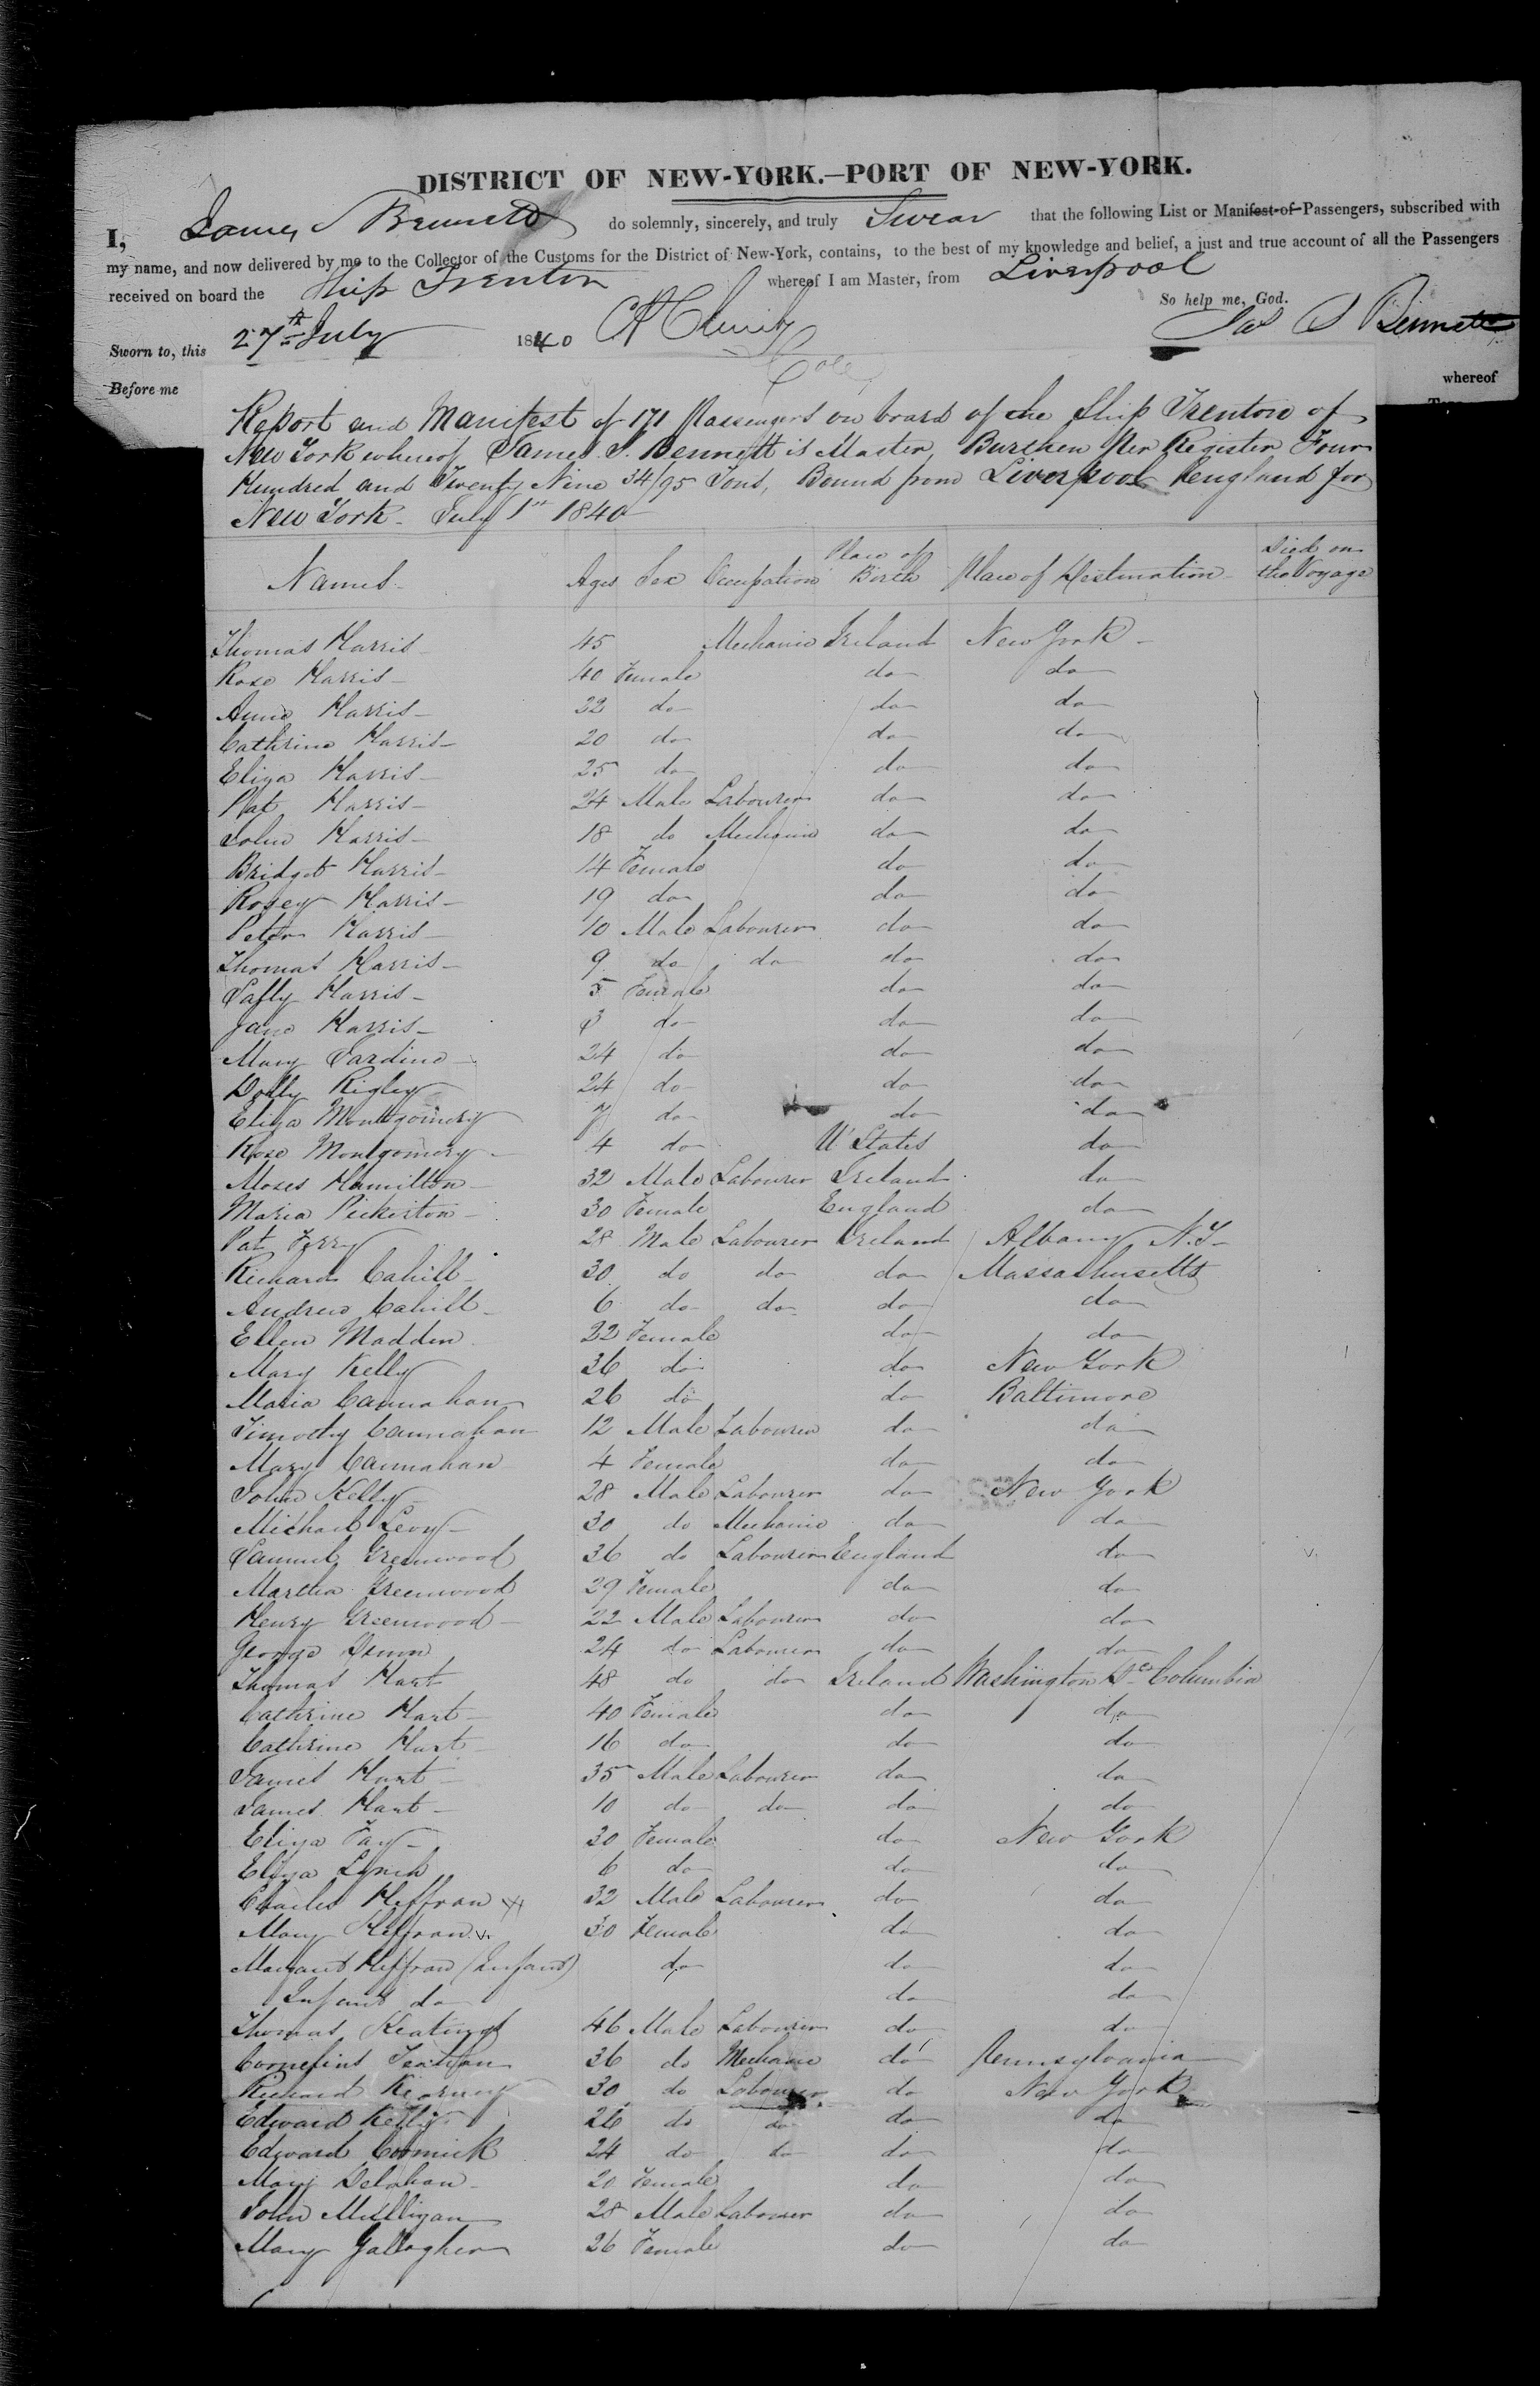 DISTRICT OF NEW-YORK.—PORT OF NEW-YORK.
I, James S Bennett do solemnly, sincerely, and truly Swear that the following List or Manifest of Passengers, subscribed with
my name, and now delivered by me to the Collector of the Customs for the District of New-York, contains, to the best of my knowledge and belief, a just and true account of all the Passengers
received on board the Ship Trenton whereof I am Master, from Liverpool
So help me, God.
Sworn to, this 27th July 1840 Jas S Bennett
Before me whereof
Report and Manifest of 171 Passengers on board of the Ship Trenton of
New York whereof James S. Bennett is Master, Burthen Per Register Four
Hundred and Twenty Nine 34/95 Tons, Bound from Liverpool England for
New York. July 1st 1840
Names Ages Sex Occupation Place of Birth Place of Destination Died on the Voyage
Thomas Harris 45 Mechanic Ireland New York
Rose Harris 40 Female do do
Anne Harris 22 do do do
Cathrine Harris 20 do do do
Eliza Harris 25 do do do
Pat Harris 24 Male Labourer do do
John Harris 18 do Mechanic do do
Bridget Harris 14 Female do do
Rosey Harris 19 do do do
Peter Harris 10 Male Labourer do do
Thomas Harris 9 do do do do
Sally Harris 5 Female do do
Jane Harris 3 do do do
Mary Sardine 24 do do do
Dolly Rigley 24 do do do
Eliza Montgomery 7 do do do
Rose Montgomery 4 do U States do
Moses Hamilton 32 Male Labourer Ireland do
Maria Pickerton 30 Female England do
Pat Ferry 28 Male Labourer Ireland Albany N.Y
Richard Cahill 30 do do do Massachusetts
Andrew Cahill 6 do do do do
Ellen Madden 22 Female do do
Mary Kelly 36 do do New York
Maria Cannahan 26 do do Baltimore
Timothy Cannahan 12 Male Labourer do do
Mary Cannahan 4 Female do do
John Kelly 28 Male Labourer do New York
Michael Levy 30 do Mechanic do do
Samuel Greenwood 36 do Labourer England do
Martha Greenwood 29 Female do do
Henry Greenwood 22 Male Labourer do do
George 24 do Labourer do do
Thomas Hart 48 do do Ireland Washington Dc Columbia
Cathrine Hart 40 Female do do
Cathrine Hart 16 do do do
James Hart 35 Male Labourer do do
James Hart 10 do do do do
Eliza Fay 30 Female do New York
Eliza Lynch 6 do do do
Charles Heffran 32 Male Labourer do do
Mary Heffran 30 Female do do
Margaret Heffran (Infant) do do do
Infant do do do
Thomas Keatings 46 Male Labourer do do
Cornelius 36 do Mechanic do Pennsylvania
Richard Kearney 30 do Labourer do New York
Edward Kelly 26 do do do do
Edward Cormick 24 do do do do
Mary Delahan 20 Female do do
John Milligan 28 Male Labourer do do
Mary Gallagher 26 Female do do